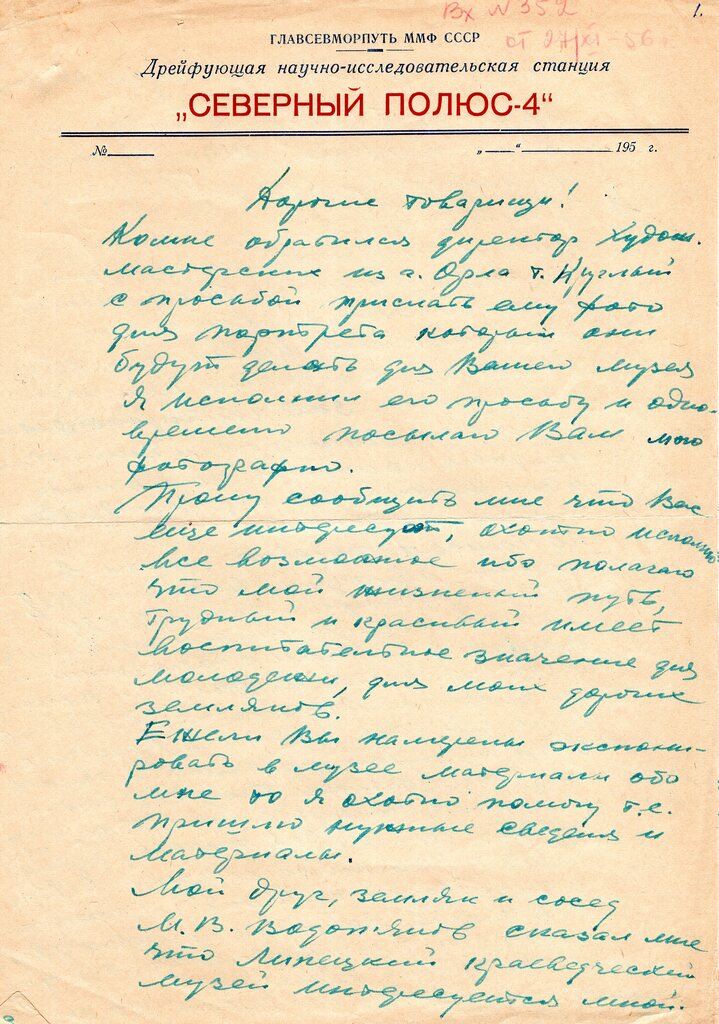 Вх № 352
1.
от 24/XI - 56 г.
ГЛАВСЕВМОРПУТЬ ММФ СССР
Дрейфующая научно-исследовательская станция
„СЕВЕРНЫЙ ПОЛЮС-4“
№ „ “ 195 г.
Дорогие товарищи!
Комне обратился директор Худож.
мастерских из г. Орла т. Круглый
с просьбой прислать ему фото
для портрета который они
будут делать для Вашего музея
Я исполнил его просьбу и одно-
времено посылаю Вам мою
фотографию.
Прошу сообщить мне что Вас
еще интересует, охотно исполню
все возможное ибо полагаю
что мой жизненый путь,
трудный и красивый имеет
воспитательное значение для
молодежи, для моих дорогих
земляков.
Ежели Вы намерены экспони-
ровать в музее материалы обо
мне то я охотно помогу т.е.
пришлю нужные сведения и
материалы.
Мой друг, земляк и сосед
М. В. Водопьянов сказал мне
что Липецкий краеведческий
музей интересуется мной.